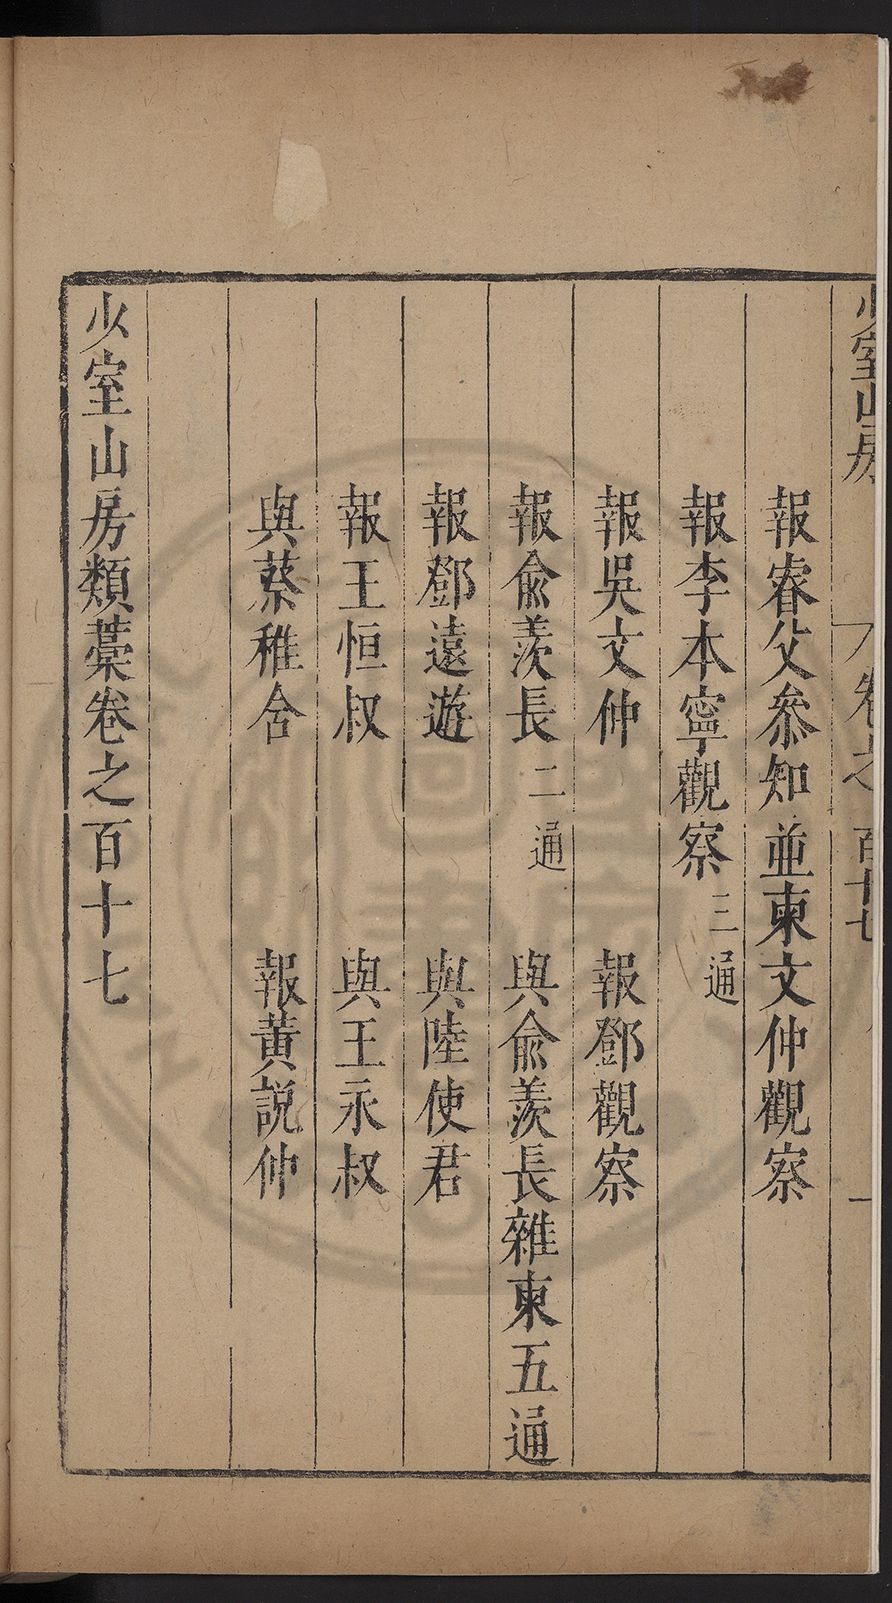 少室山房
卷之百十七
一
報睿父叅知並柬文仲觀察
報李本寧觀察三通
報吳文仲 報鄧觀察
報俞羨長二通 與俞羨長雜柬五通
報鄧遠遊 與陸使君
報王恒叔 與王永叔
與蔡稚含 報黃説仲
少室山房類藁卷之百十七